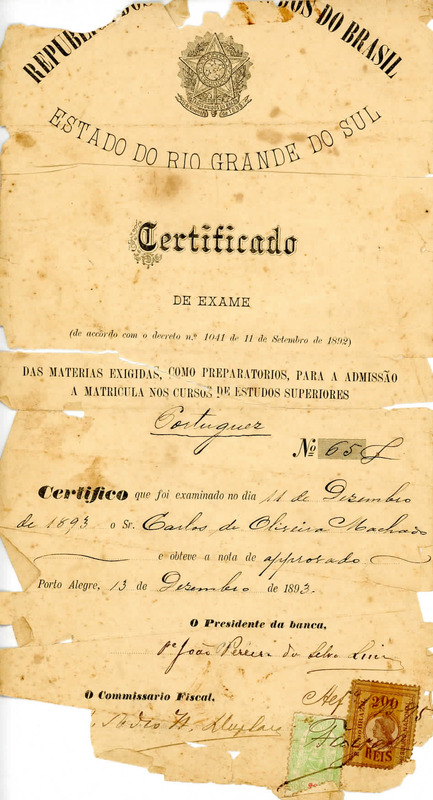 REPUBLI DOS DOS DO BRASIL
ESTADO DO RIO GRANDE DO SUL
Certificado
DE EXAME
(de accôrdo com o decreto n.º 1041 de 11 de Setembro de 1892)
DAS MATERIAS EXIGIDAS, COMO PREPARATORIOS, PARA A ADMISSÃO
A MATRICULA NOS CURSOS DE ESTUDOS SUPERIORES
Portuguez
Nº 65
Certifico que foi examinado no dia 11 de Dezembro
de 1893 o Sr. Carlos de Oliveira Machado
e obteve a nota de approvado
Porto Alegre, 13 de Dezembro de 1893.
O Presidente da banca,
Pe João Pereira da Silva Lima
O Commissario Fiscal,
200
REIS